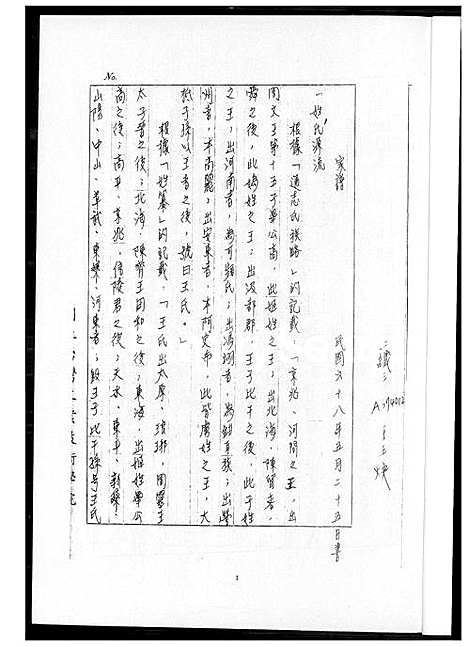 No.
家譜
民國六十八年五月二十五日書
一姓氏源流
根據「通志氏族略」的記載,「京兆、河間之王,出
周文王第十五子畢公高,此姬姓之王;出北海、陳留者,
舜之後,此媯姓之王;出汲郡郡,王子比干之後,此子姓
之王;出河南者,為可頻氏;出馮翊者,為鉗耳族;出營
州者,本高麗;出安東者,本阿史布,此皆虜姓之王,大
抵子孫以王者之後,號曰王氏。」
根據「姓纂」的記載,「王氏出太原、琅琊,周靈王
太子晉之後;北海、陳留王田和之後;東海,出姬姓畢公
高之後;高平、京兆,信陵君之後;天水、東平、新蔡、
山陽、中山、章武、東
河東者,殷王子比干孫号王氏
1